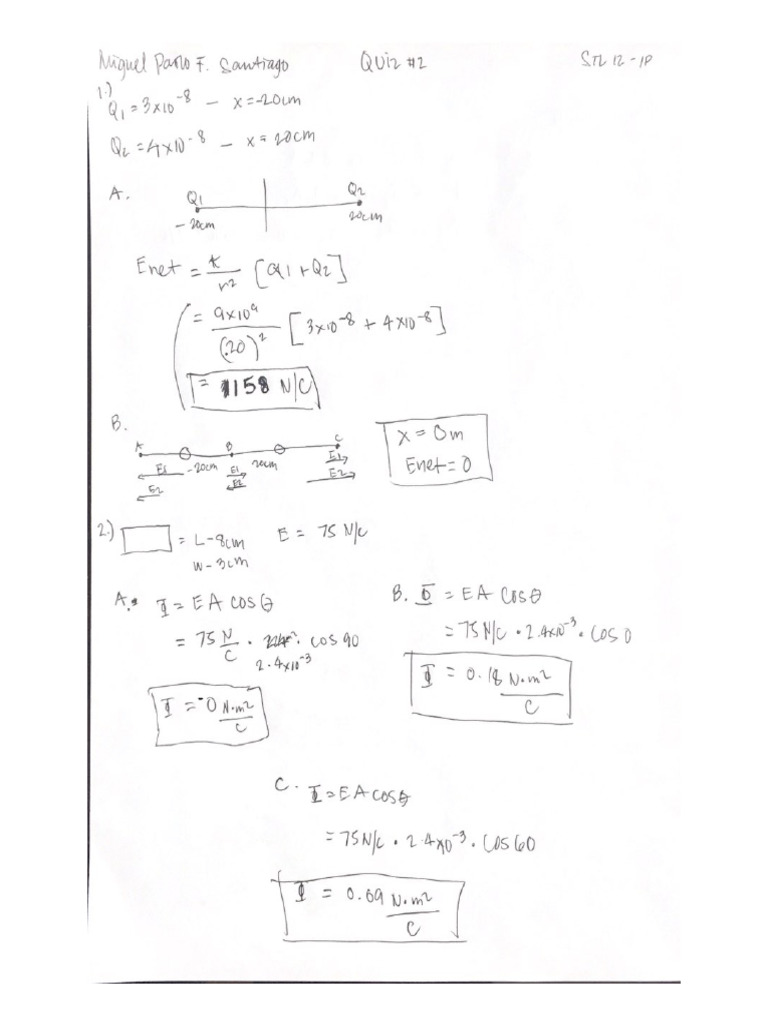 Miguel Paolo F. Santiago QUIZ #2 STL 12 - 1P
1.)
Q1 = 3x10^-8 – x = -20cm
Q2 = 4x10^-8 – x = 20cm
A. Q1 Q2
-20cm 20cm
Enet = k/r^2 [Q1 + Q2]
= 9x10^9/(.20)^2 [3x10^-8 + 4x10^-8]
= 1158 N/C
B.
A B C
-20cm 20cm
E1 E1 E1
E2 E2 E2
x = 0m
Enet = 0
2.) = L-8cm E = 75 N/C
W-3cm
A. Φ = EA cosθ
= 75 N/C · 2.4x10^-3 · cos 90
Φ = 0 N·m^2/C
B. Φ = EA cosθ
= 75 N/C · 2.4x10^-3 · cos 0
Φ = 0.18 N·m^2/C
C. Φ = EA cosθ
= 75 N/C · 2.4x10^-3 · cos 60
Φ = 0.09 N·m^2/C